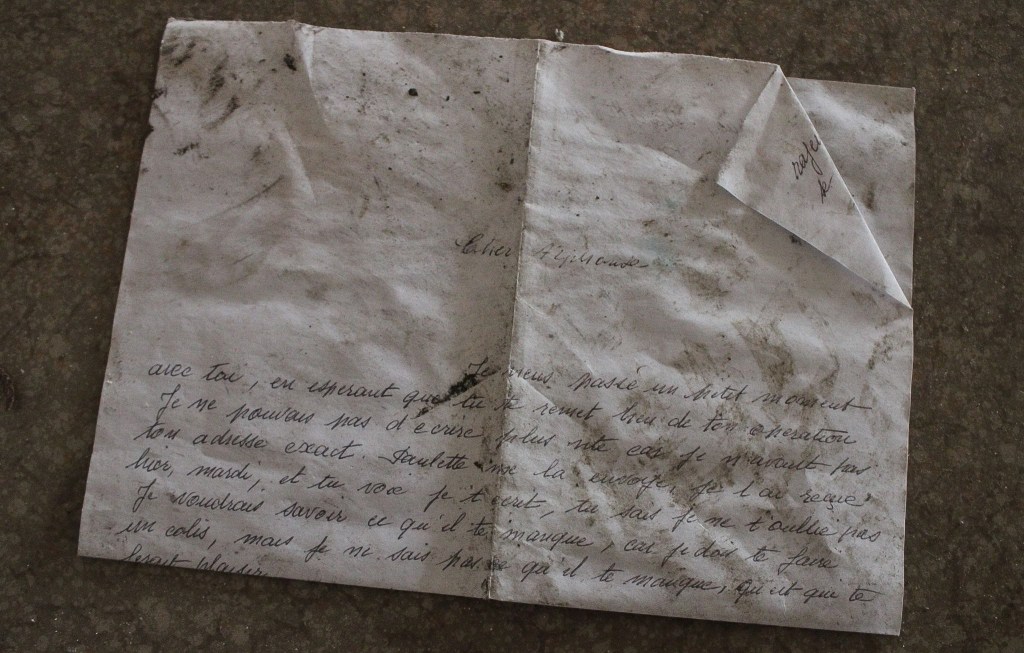 Cher Alphonse
Je viens passé un petit moment
avec toi, en esperant que tu te remet bien de ton operation
Je ne pouvais pas d'écrire plus vite car je n'avait pas
ton adresse exact. Paulette me la envoye, je l'ai reçue
hier, mardi, et tu voie je t'ecrit, tu sais je ne t'oublie pas
Je voudrais savoir ce qu'il te manque, car je dois te faire
un colis, mais je ne sais pas ce qu'il te manque, qu'est que te
ferait plaisir